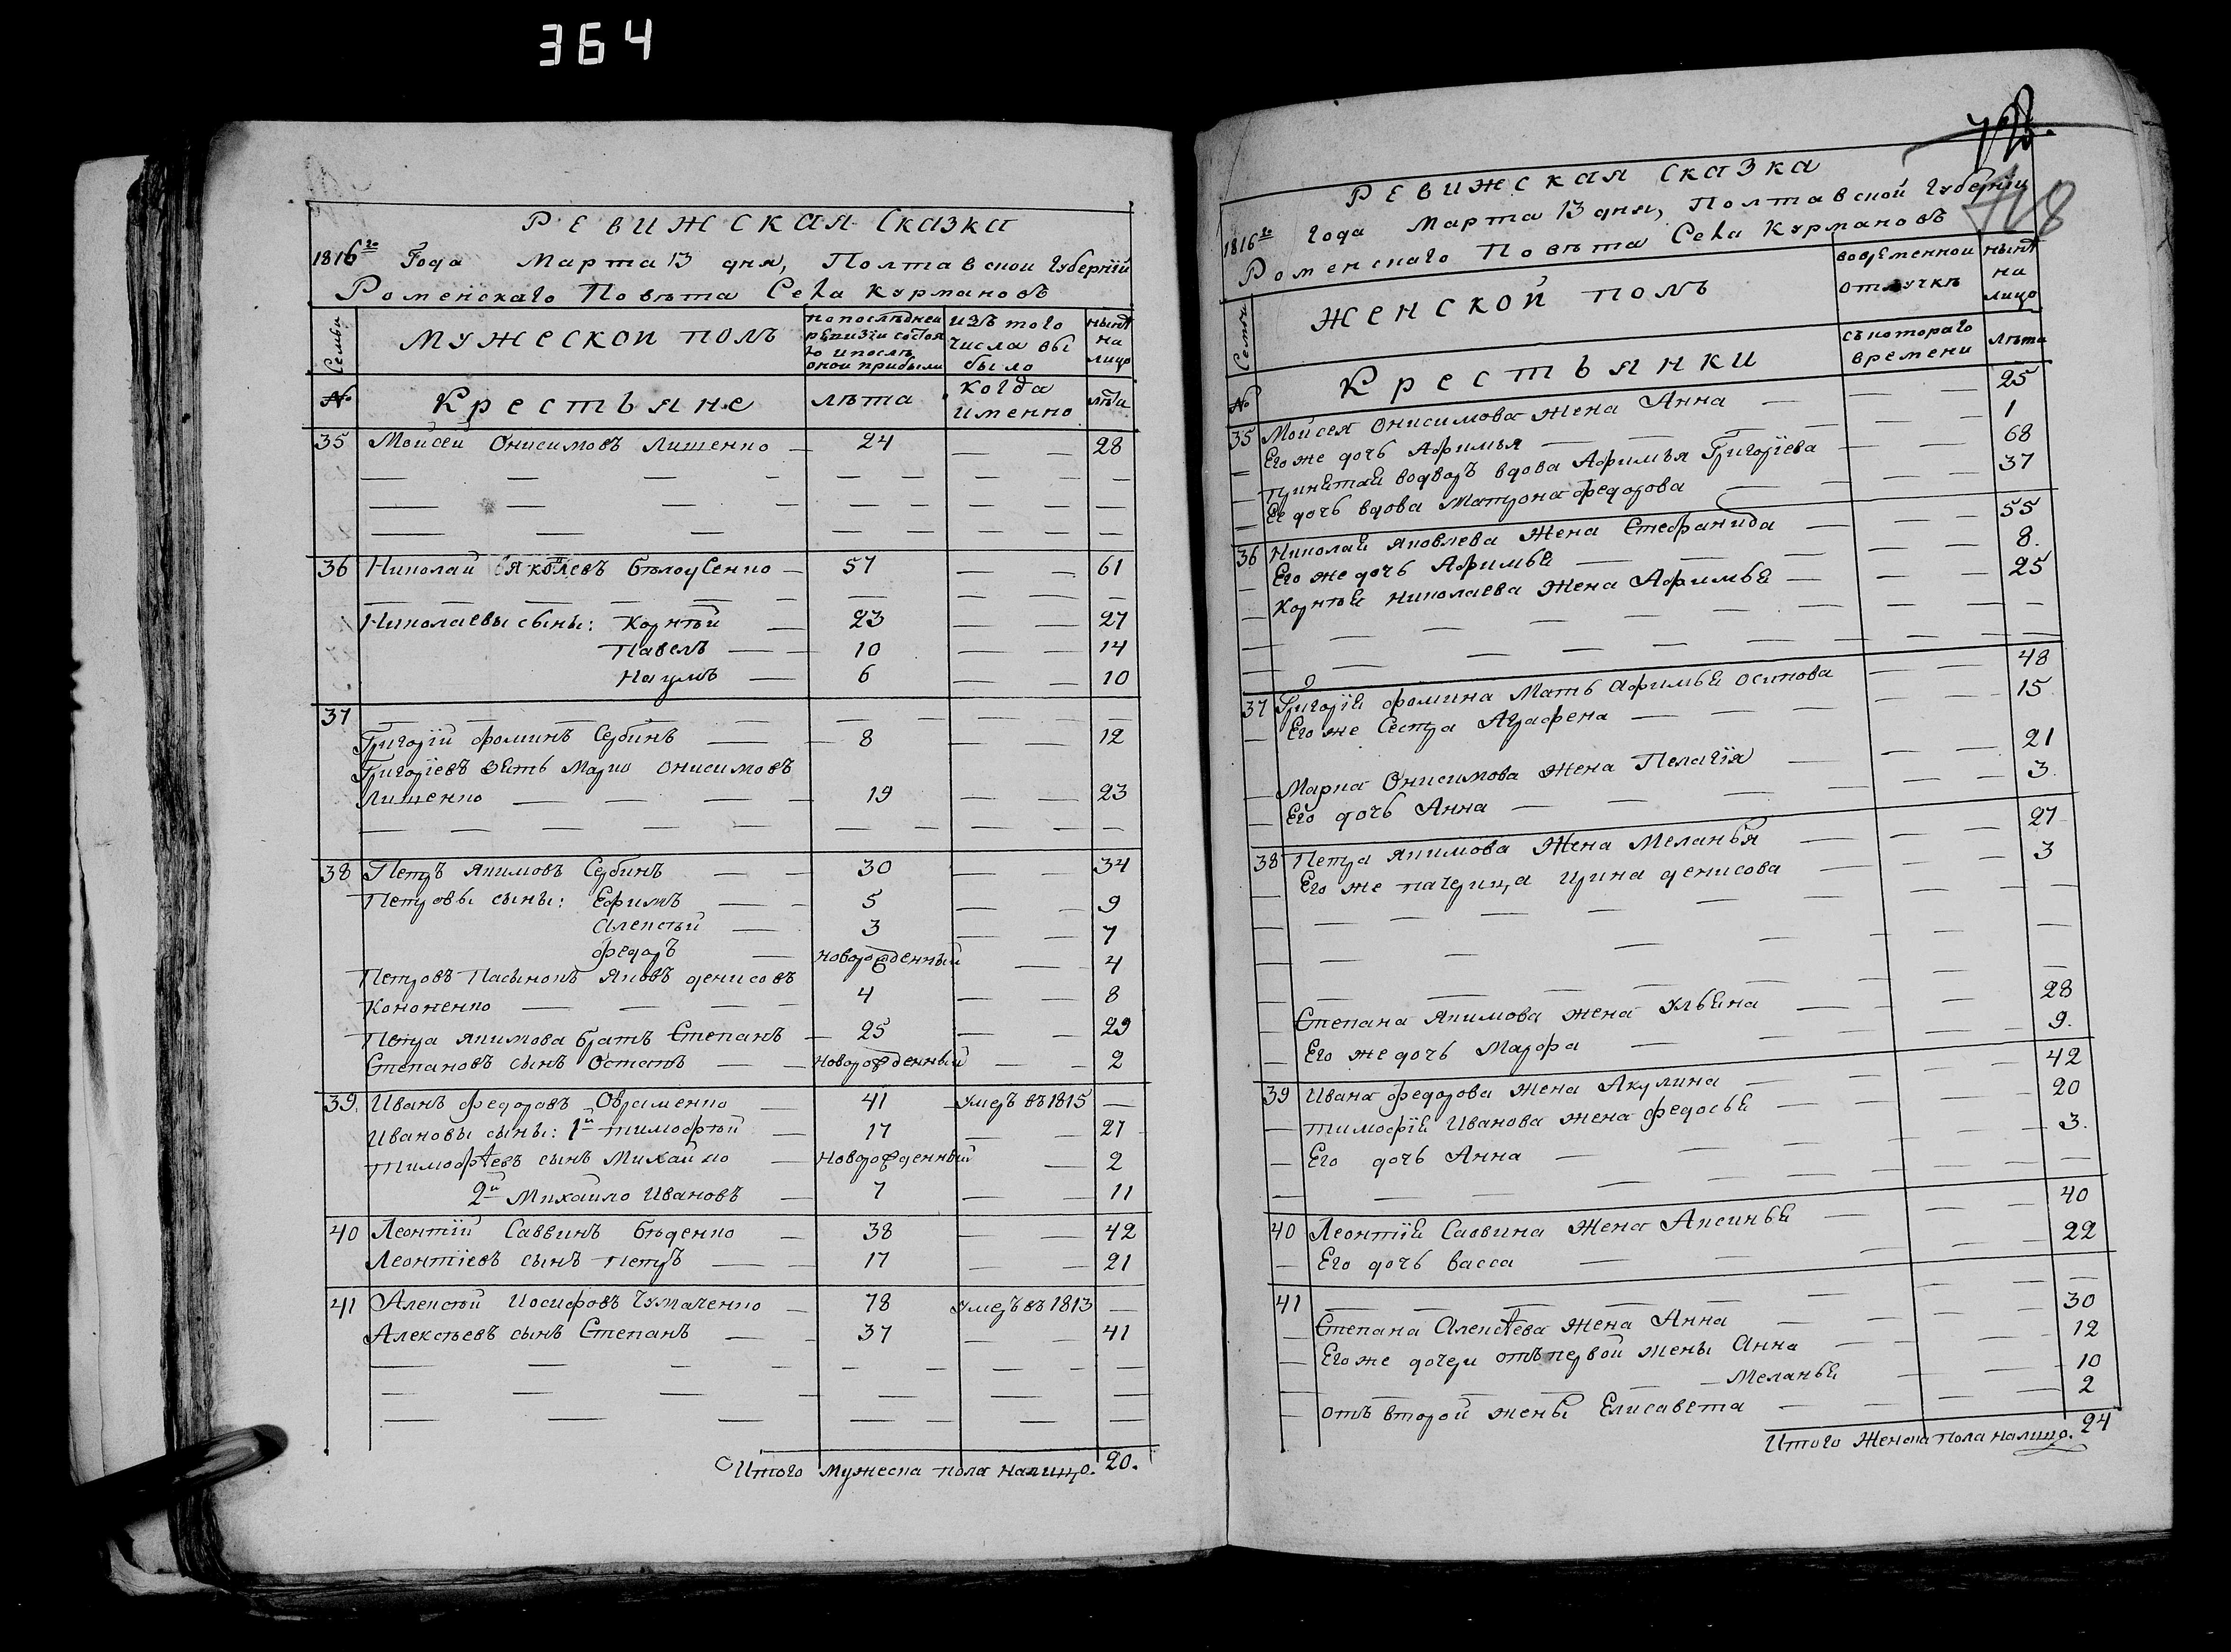 364
Ревижская Сказка
1816го Года Марта 13 дня, Полтавской Губернїи
Роменскаго Повѣта Села Курмановъ
Семьи
Мужеской полъ
по последней ревизїи состояло и послѣ оной прибыли
изъ того числа выбыло
нынѣ на лицо
№
Крестьяне
лѣта
когда именно
лѣта
35 Мойсей Онисимовъ Лишенко — 24 — — 28
36 Николай Яковлевъ Бѣлоусенко — 57 — — 61
Николаевы сыны: Корнѣй — 23 — — 27
Павелъ — 10 — — 14
Наумъ — 6 — — 10
37
Григорїй фоминъ Сербинъ — 8 — — 12
Григорїевъ зять Марко Онисимовъ
Лишенко — 19 — — 23
38 Петръ Якимовъ Сербинъ — 30 — 34
Петровы сыны: Ефимъ — 5 — 9
Алексѣй — 3 — — 7
федоръ — новорожденный — 4
Петровъ Пасынокъ Яковъ денисовъ
Кононенко — 4 — — 8
Петра Якимова братъ Степанъ — 25 — 29
Степановъ сынъ Остапъ — новорожденный — 2
39. Иванъ федоровъ Овраменко — 41 — умеръ въ 1815 —
Ивановы сыны: 1й тимофѣй — 17 — — 21
тимофѣевъ сынъ Михайло — новорожденный — 2
2й Михайло Ивановъ — 7 — — 11
40 Леонтїй Саввинъ бѣденко — 38 — — 42
Леонтїевъ сынъ петръ — 17 — — 21
41 Алексѣй Иосифовъ Чумаченко — 78 умеръ въ 1813 —
Алексѣевъ сынъ Степанъ — 37 — — 41
Итого Мужеска пола налицо. 20.
Ревижская Сказка
1816го года Марта 13 дня, Полтавской Губернїи
Роменскаго Повѣта Села Курмановъ
Семьи
Женской полъ
во временной отлучкѣ
нынѣ на лицо
№
Крестьянки
съ котораго времени
лѣта
35 Мойсея Онисимова Жена Анна — 25
Его же дочь Афимья — 1
принятая водворъ вдова Афимья Григорїева — 68
Ее дочь вдова Матрона федорова — 37
36 Николая Яковлева Жена Стефанида — 55
Его же дочь Афимья — 8.
Корнѣя Николаева Жена Афимья — 25
37 Григорїя фомина Мать Афимья осипова — 48
Его же Сестра Аграфена — 15
Марка Онисимова Жена Пелагїя — 21
Его дочь Анна — 3.
38 Петра Якимова Жена Меланья — 27
Его же падчерица Ирина денисова — 3
Степана Якимова жена Ульяна — 28
Его же дочь Марфа — 9.
39 Ивана федорова жена Акулина — 42
тимофїя Иванова жена федосья — 20
Его дочь Анна — 3.
40 Леонтїя Саввина Жена Аксинья — 40
Его дочь васса — 22
41
Степана Алексѣева Жена Анна — 30
Его же дочери отъ первой жены Анна — 12
Меланья — 10
отъ второй жены Елисавета — 2
Итого Женска пола налицо. 24